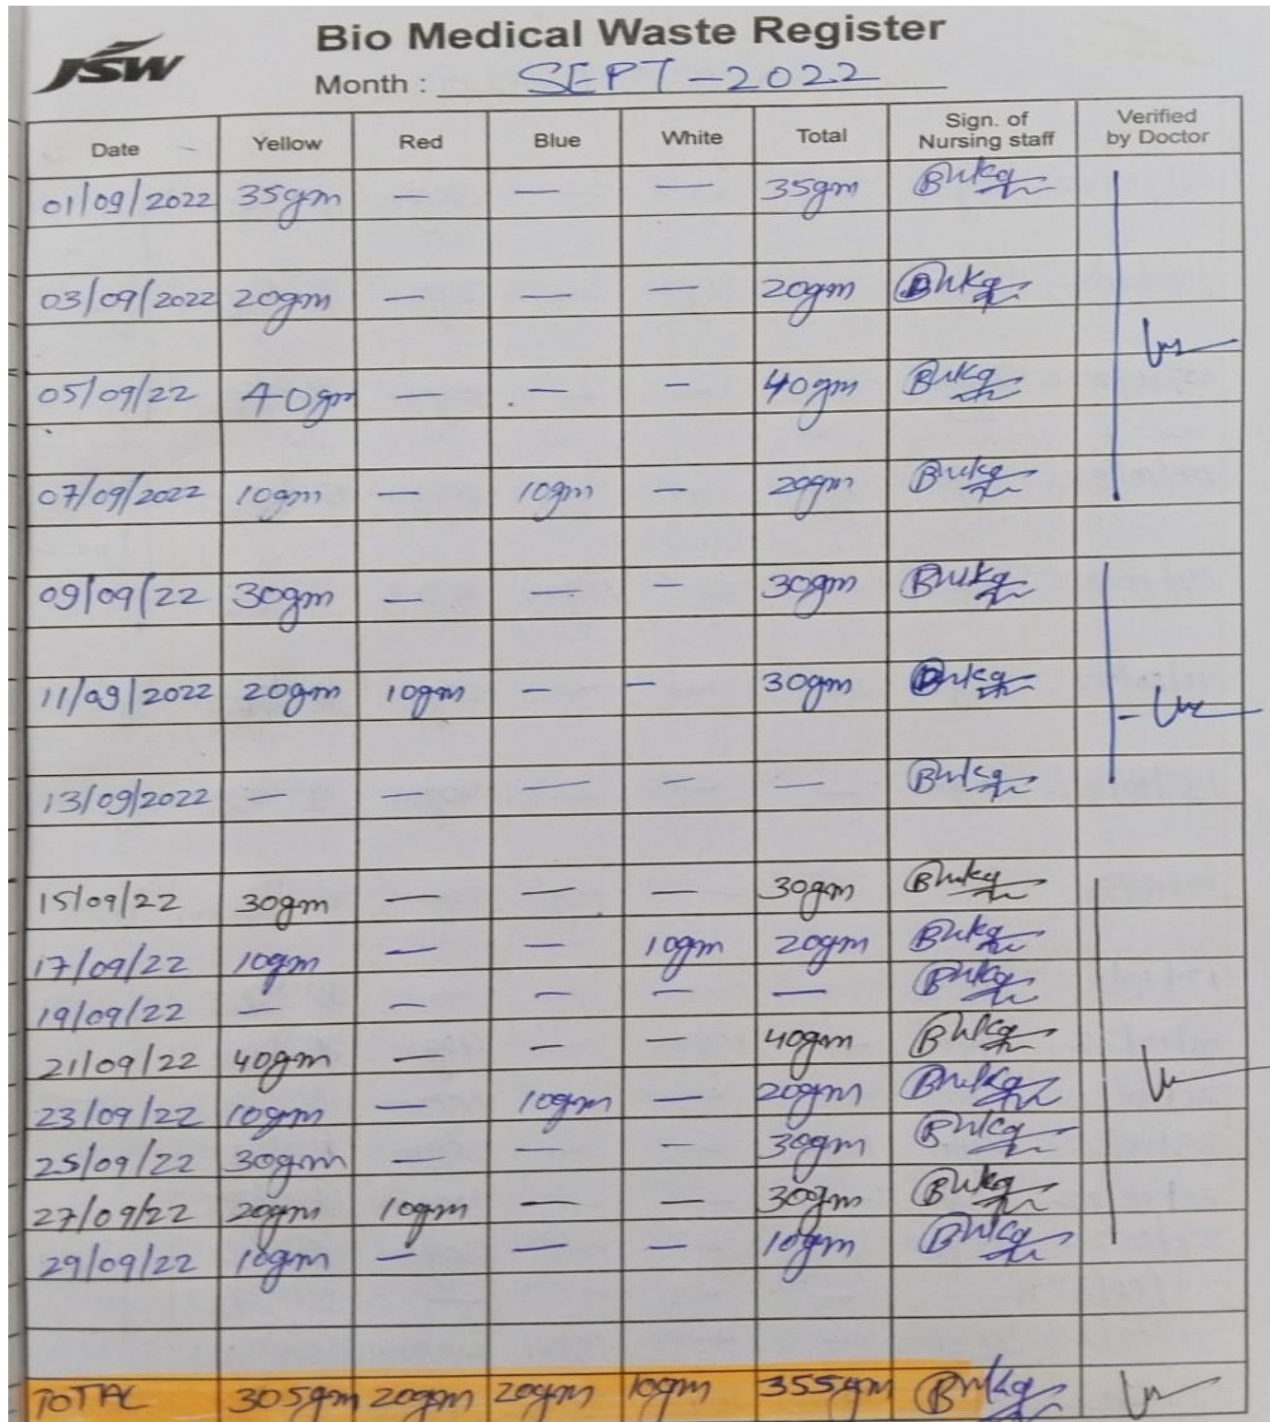 JSW
Bio Medical Waste Register
Month : SEPT-2022
Date Yellow Red Blue White Total Sign. of Nursing staff Verified by Doctor
01/09/2022 35gm — — — 35gm
03/09/2022 20gm — — — 20gm
05/09/22 40gm — — — 40gm
07/09/2022 10gm — 10gm — 20gm
09/09/22 30gm — — — 30gm
11/09/2022 20gm 10gm — — 30gm
13/09/2022 — — — — —
15/09/22 30gm — — — 30gm
17/09/22 10gm — — 10gm 20gm
19/09/22 — — — — —
21/09/22 40gm — — — 40gm
23/09/22 10gm — 10gm — 20gm
25/09/22 30gm — — — 30gm
27/09/22 20gm 10gm — — 30gm
29/09/22 10gm — — — 10gm
TOTAL 305gm 20gm 20gm 10gm 355gm